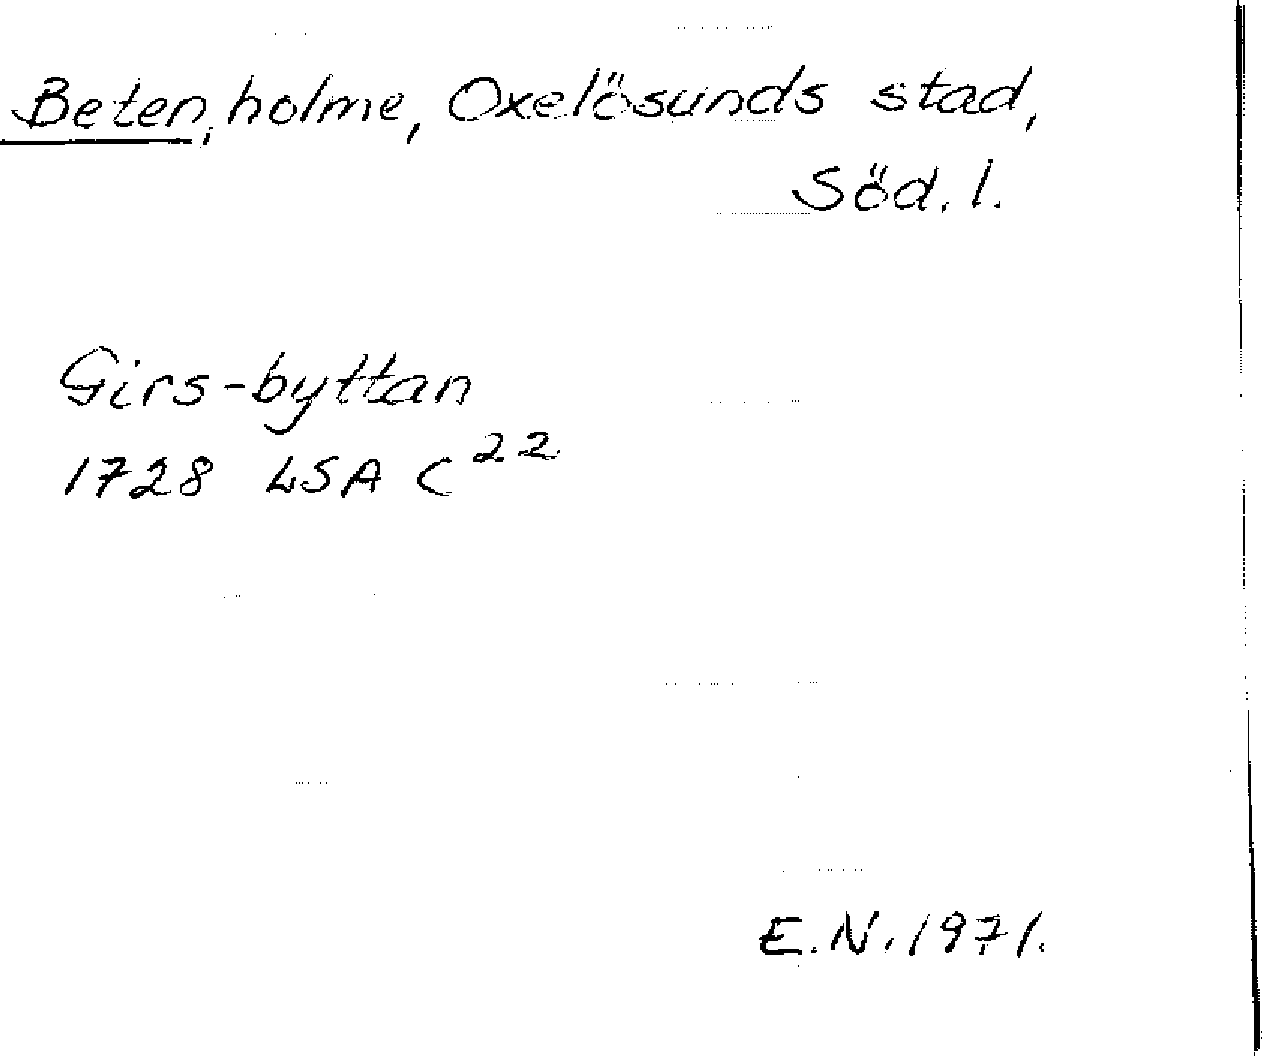 Beten, holme, Oxelösunds stad,
Söd. l.
Girs-byttan
1728 LSA C²²
E.N. 1971.